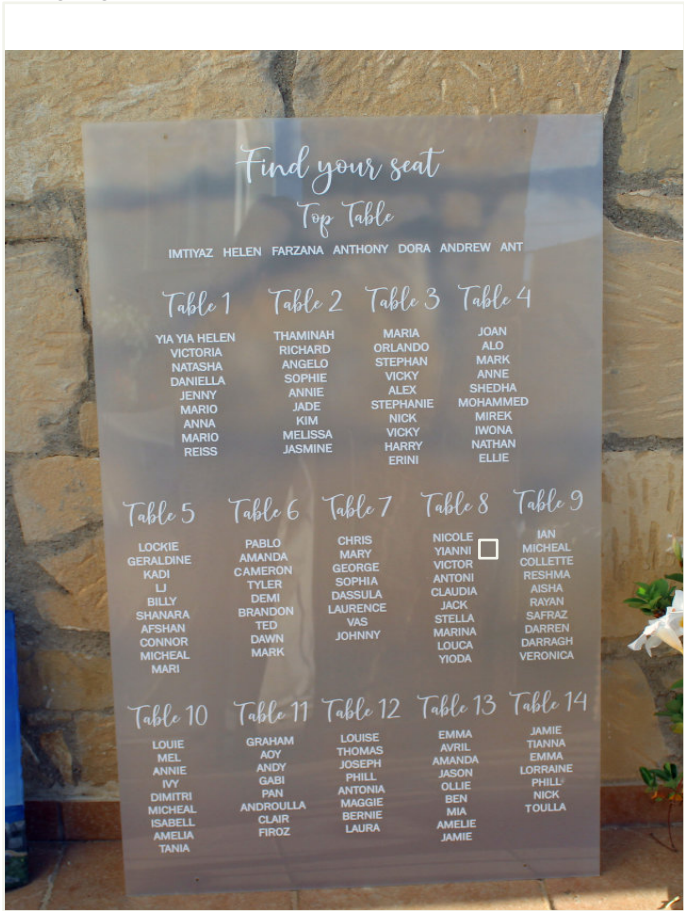 Find your seat
Top Table
IMTIYAZ HELEN FARZANA ANTHONY DORA ANDREW ANT
Table 1
YIA YIA HELEN
VICTORIA
NATASHA
DANIELLA
JENNY
MARIO
ANNA
MARIO
REISS
Table 2
THAMINAH
RICHARD
ANGELO
SOPHIE
ANNIE
JADE
KIM
MELISSA
JASMINE
Table 3
MARIA
ORLANDO
STEPHAN
VICKY
ALEX
STEPHANIE
NICK
VICKY
HARRY
ERINI
Table 4
JOAN
ALO
MARK
ANNE
SHEDHA
MOHAMMED
MIREK
IWONA
NATHAN
ELLIE
Table 5
LOCKIE
GERALDINE
KADI
LJ
BILLY
SHANARA
AFSHAN
CONNOR
MICHEAL
MARI
Table 6
PABLO
AMANDA
CAMERON
TYLER
DEMI
BRANDON
TED
DAWN
MARK
Table 7
CHRIS
MARY
GEORGE
SOPHIA
DASSULA
LAURENCE
VAS
JOHNNY
Table 8
NICOLE
YIANNI
VICTOR
ANTONI
CLAUDIA
JACK
STELLA
MARINA
LOUCA
YIODA
Table 9
IAN
MICHEAL
COLLETTE
RESHMA
AISHA
RAYAN
SAFRAZ
DARREN
DARRAGH
VERONICA
Table 10
LOUIE
MEL
ANNIE
IVY
DIMITRI
MICHEAL
ISABELL
AMELIA
TANIA
Table 11
GRAHAM
AOY
ANDY
GABI
PAN
ANDROULLA
CLAIR
FIROZ
Table 12
LOUISE
THOMAS
JOSEPH
PHILL
ANTONIA
MAGGIE
BERNIE
LAURA
Table 13
EMMA
AVRIL
AMANDA
JASON
OLLIE
BEN
MIA
AMELIE
JAMIE
Table 14
JAMIE
TIANNA
EMMA
LORRAINE
PHILL
NICK
TOULLA